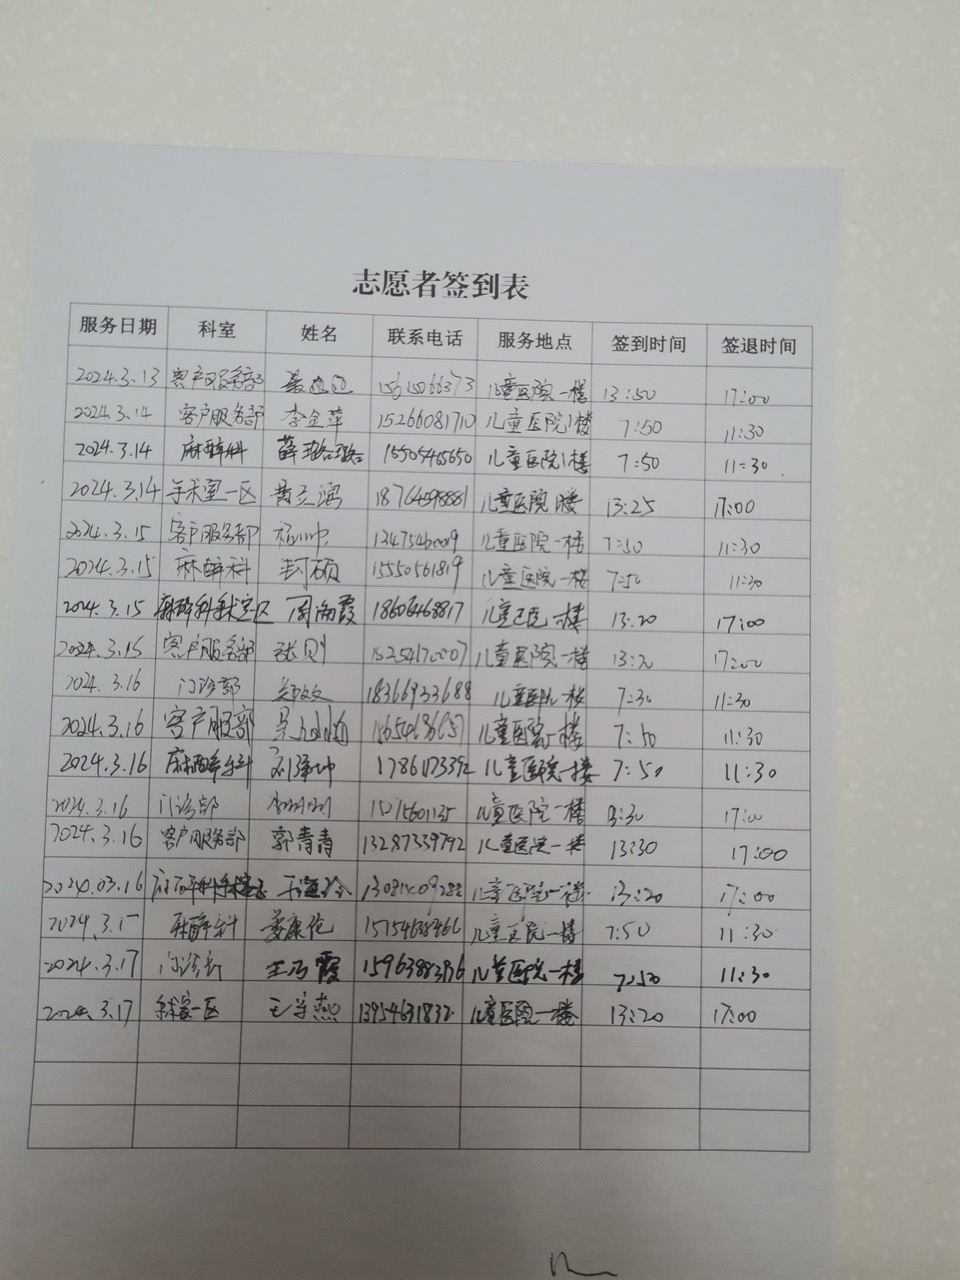 志愿者签到表
服务日期 科室 姓名 联系电话 服务地点 签到时间 签退时间
2024.3.13 客户服务部 儿童医院一楼 13:50 17:00
2024.3.14 客户服务部 李金萍 15266081710 儿童医院1楼 7:50 11:30
2024.3.14 麻醉科 薛璐璐 15505465650 儿童医院1楼 7:50 11:30
2024.3.14 手术室一区 18764598881 儿童医院1楼 13:25 17:00
2024.3.15 客户服务部 儿童医院一楼 7:50 11:30
2024.3.15 麻醉科 封硕 15550561819 儿童医院一楼 7:50 11:30
2024.3.15 麻醉科手术室区 周海霞 18606468817 儿童医院一楼 13:20 17:00
2024.3.15 客户服务部 儿童医院一楼 17:00
2024.3.16 门诊部 18366933688 儿童医院一楼 7:30 11:30
2024.3.16 客户服务部 儿童医院一楼 7:50 11:30
2024.3.16 麻醉科 17861173392 儿童医院一楼 7:50 11:30
2024.3.16 门诊部 儿童医院一楼 17:00
2024.3.16 客户服务部 郭青青 13287339792 儿童医院一楼 13:30 17:00
2024.03.16 儿童医院一楼 13:20 17:00
麻醉科 姜康伦 儿童医院一楼 7:50 11:30
2024.3.17 门诊部 儿童医院一楼 7:50 11:30
2024.3.17 手术室一区 王学燕 13954631832 儿童医院一楼 13:20 17:00